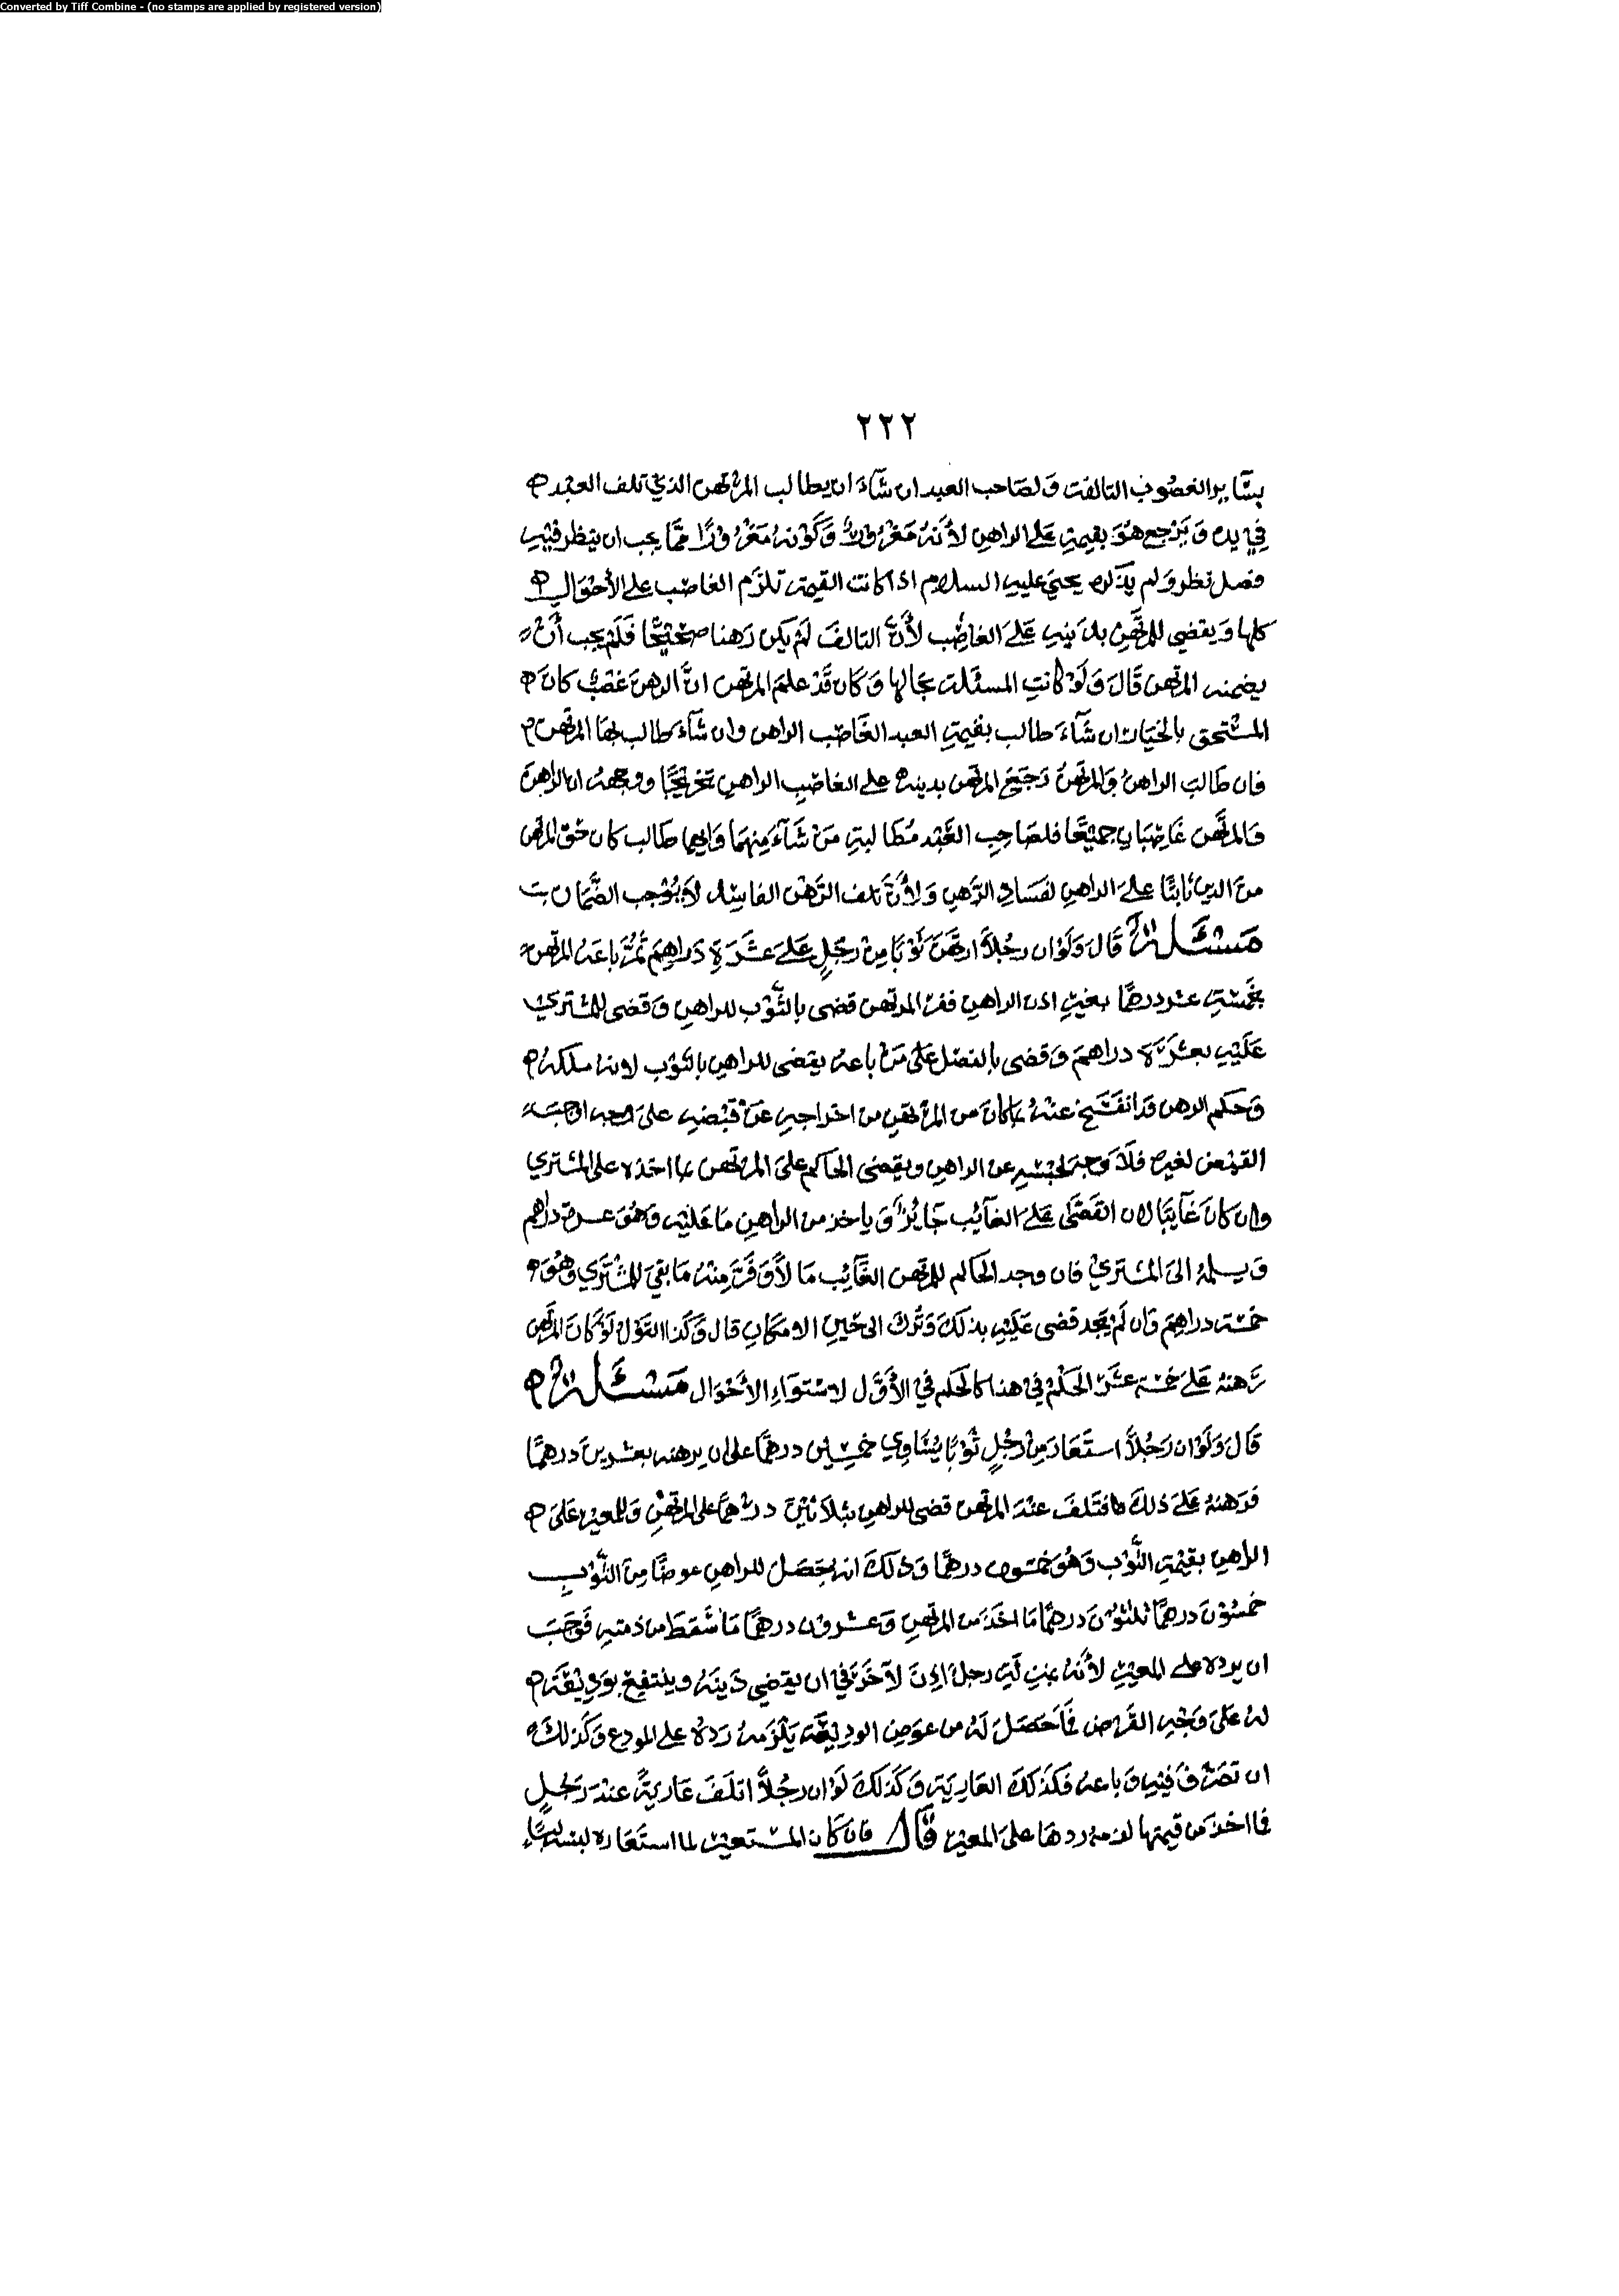 Converted by Tiff Combine - (no stamps are applied by registered version)
٢٢٢
بسَّاير الغصُوب التالفة وَلصَاحب العبد ان شَآءَ ان يطالب المرْتهن الذيْ تلف العبْد
فِيْ يده وَيَرْجع هُوَ بقيمتهِ عَلى الراهنِ لأَنهُ مَغْرُورٌ وَكَوْنهُ مَغرُ ورًا ممَّا يجب ان ينظر فيْهِ
فضل نظر وَلم يذكره يحيَى عليهِ السلام اذا كانت القيمة تلزَم الغاصب على الأحْوَال
كلها وَيقضي للمرتَهنِ بدَينهِ عَلَى الغاصِب لأَنَّ التالفَ لَمْ يكن رَهنا صَحيْحًا فَلَمْ يجب أَنْ
يضمنه المرتهن قَالَ وَلَوْ كانتِ المسئلة بحالها وَكَان قَدْ علمَ المرتهن انَّ الرهنَ غَصْبٌ كانَ
المسْتحق بالخيَار ان شَآءَ طالب بقيمةِ العبد الغَاصِب الراهن وان شآءَ طالب بهَا المرتهن
فان طالبَ الراهنُ وَالمرتهنُ رَجَعَ المرتهن بدينه على الغاصِبِ الراهنِ تخريْجًا ووجههُ ان الراهِنَ
وَالمرتَهن غَاصِبَانِ جميْعًا فلصَاحِبِ العَبْد مُطَالبةِ مَنْ شَآءَ مِنهمَا وَايهما طَالب كان حَق المرتهن
منَ الدين ثابتًا على الراهنِ لفسَادِ الرَّهنِ وَلأَنَّ تلف الرَّهْن الفاسِد لاَ يُوْجب الضَّمَان
مَسْئَلة قَالَ وَلَوْ ان رجُلاً ارتهَنَ ثَوْبًا مِنْ رَجلٍ عَلىَ عَشَرَةِ دَراهِمَ ثمَّ باعَهُ المرتهن
بخَمْسَةِ عشر درهمًا بغيرِ اذن الراهنِ ففر المرتهن قضى بالثَّوْب للراهنِ وَقضى للمشترِيْ
عَلَيْهِ بعَشَرَةَ دراهمَ وَقضى بالفضْل عَلىَ مَنْ باعهُ يقضى للراهنِ بالثوْب لانهُ ملكهُ
وَحكم الرهن قد انفَسَخ عنْهُ بما كانَ من المرْتهنِ من اخراجهِ عَنْ قَبْضهِ علىَ وجه اوجبَ
القبض لغيره فلاَ وَجهَ لحبْسهِ عن الراهنِ ويقضى الحاكم علىَ المرتهن بما اخذه على المشتري
وان كانَ غآيبًا لان القَضَى عَلى الغآيب جَايزٌ وَياخذ من الراهنِ مَا عَليْه وَهُوَ عشرة دراهم
وَيسلمهُ الىَ المشتريْ فان وجد الحَاكم للمرتهن الغَآيِب مَالاً وَفَّرَ مِنْهُ مَا بَقيَ للمشْتَرِي وَهُوَ
خمسَة دراهِمَ وَان لَمْ يجد قضى عَليْهِ بذلكَ وَتُرك الى حيْنِ الامكانِ قال وَكذا القوْل لَوْ كانَ المرتهن
رَهنهُ عَلىَ خمسَة عشَرَ الحكْم فيْ هذا كالحكم فيْ الأَوَّل لاسْتوَاءِ الأحْوَال مَسْئَلة
قَالَ وَلَوْ ان رَجُلاً استَعَار مِنْ رَجُلٍ ثَوْبًا يُسَاوِي خمسِيْن درهمًا على ان يرهنه بعشرينَ درهمًا
فرَهنهُ عَلىَ ذلكَ فتَلفَ عنْدَ المرتهن قضى للراهنِ بثلاَثيْن درْهمًا على المرتهنْ وَللمعيْر عَلَىَ
الراهنِ بقيمْةِ الثَّوْب وَهُوَ خمسُون درهمًا وَذلكَ انهُ يحصَلَ للراهنِ عوضًا مِنَ الثَّوْبِ
خمسُوْنَ درهمًا ثلثُوْنَ درهمًا مَا اخذَ مَن المرتهنِ وَعشرون درهمًا مَا سَقطَ من ذمتهِ فوَجبَ
ان يرده على المعيرِ لأَنهُ بمنزلَة رجل اذِنَ لآخَرَ فيْ ان يقضي دَينَهُ وينتفع بوَدِيْعَة
لهُ عَلىَ وَجْهِ القَرْض فمَا حَصَلَ لَهُ من عوَض الوديعَة يَلْزَمهُ رَدهُ على المودع وَكذلكَ
ان تصَرَّفَ فيْهِ وَباعهُ فكَذلكَ العَاريَة وَكَذلكَ لَوْ ان رجُلاً اتلَفَ عَاريَةً عنْدَ رَجُلٍ
فما اخذَ من قيمتها لزمهُ رد هَا علىَ المعيْر قَالَ فان كان المسْتعيْر لما استَعَاره لبسَهُ